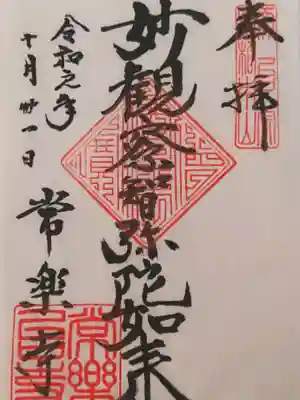 奉拝
妙観察智弥陀如来
令和元年
十月卅一日
常楽寺
常樂